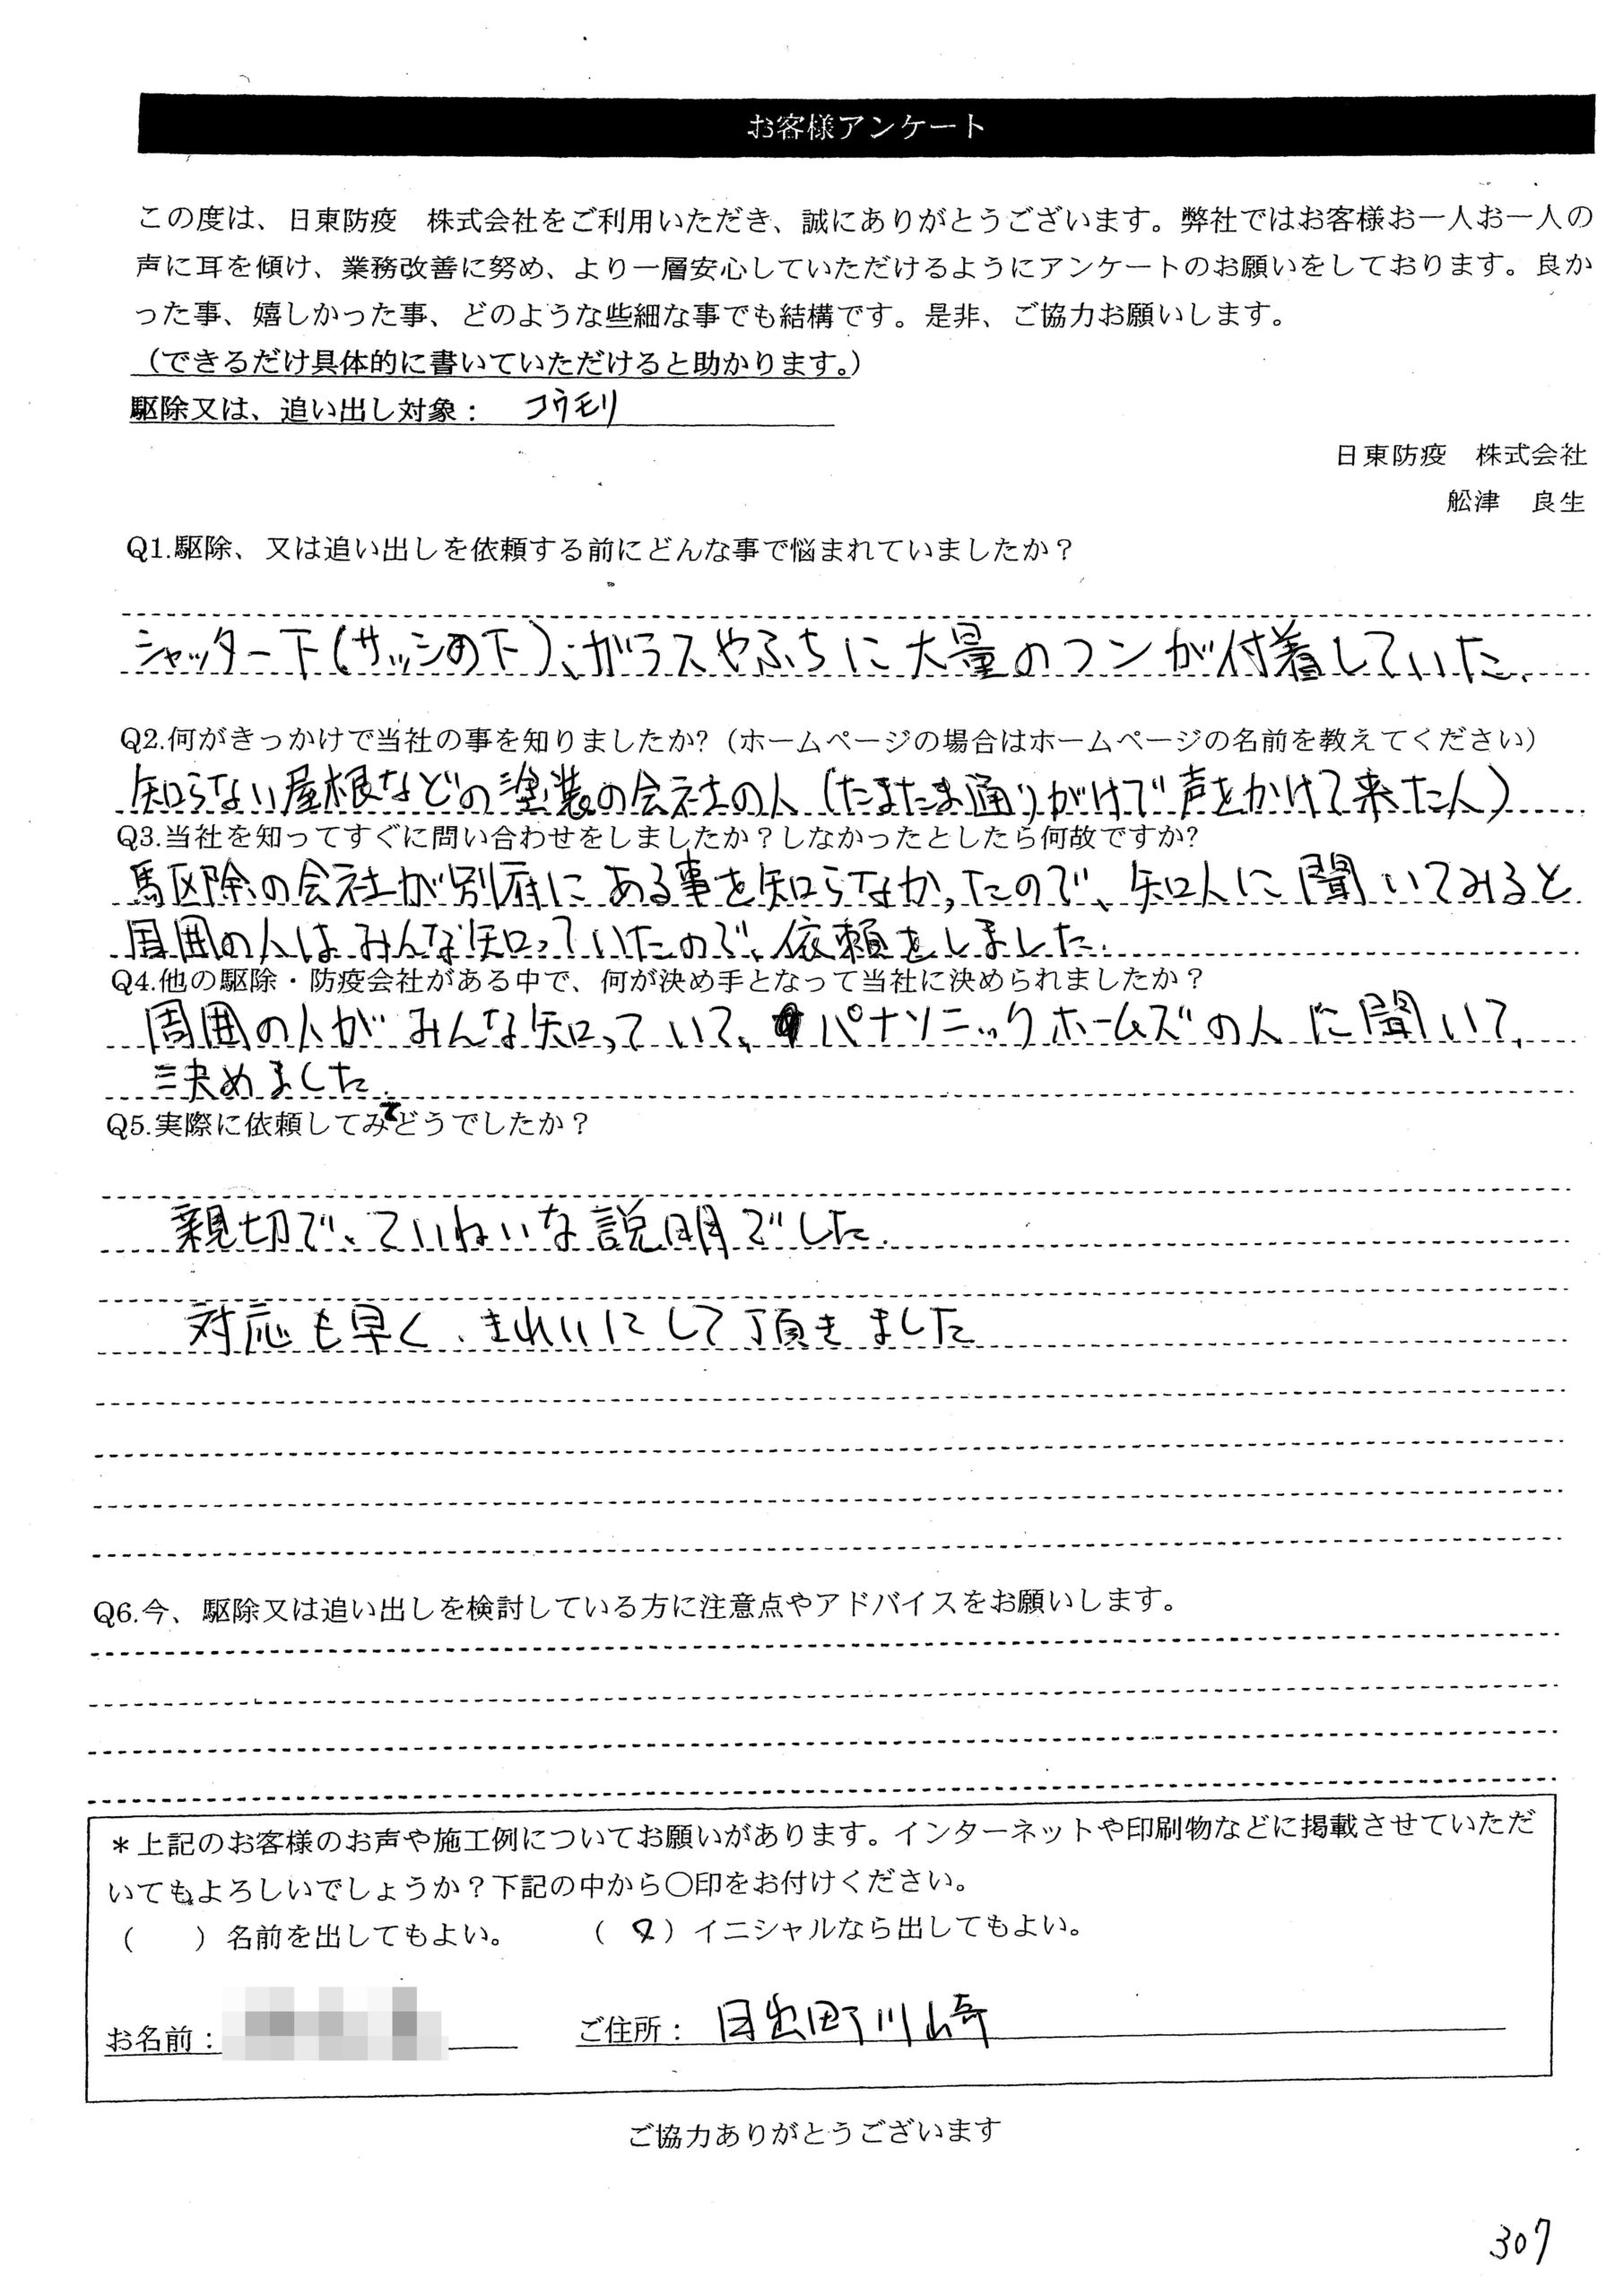 お客様アンケート
この度は、日東防疫　株式会社をご利用いただき、誠にありがとうございます。弊社ではお客様お一人お一人の
声に耳を傾け、業務改善に努め、より一層安心していただけるようにアンケートのお願いをしております。良か
った事、嬉しかった事、どのような些細な事でも結構です。是非、ご協力お願いします。
（できるだけ具体的に書いていただけると助かります。）
駆除又は、追い出し対象：　コウモリ
日東防疫　株式会社
舩津　良生
Q1.駆除、又は追い出しを依頼する前にどんな事で悩まれていましたか？
シャッター下(サッシの下)、ガラスやふちに大量のフンが付着していた、
Q2.何がきっかけで当社の事を知りましたか?（ホームページの場合はホームページの名前を教えてください）
知らない屋根などの塗装の会社の人(たまたま通りがけで声をかけて来た人)
Q3.当社を知ってすぐに問い合わせをしましたか？しなかったとしたら何故ですか?
駆除の会社が別府にある事を知らなかったので、知人に聞いてみると
周囲の人はみんな知っていたので、依頼をしました.
Q4.他の駆除・防疫会社がある中で、何が決め手となって当社に決められましたか？
周囲の人がみんな知っていて、パナソニックホームズの人に聞いて、
決めました.
Q5.実際に依頼してみてどうでしたか？
親切で、ていねいな説明でした.
対応も早く、きれいにして頂きました
Q6.今、駆除又は追い出しを検討している方に注意点やアドバイスをお願いします。
＊上記のお客様のお声や施工例についてお願いがあります。インターネットや印刷物などに掲載させていただ
いてもよろしいでしょうか？下記の中から〇印をお付けください。
（　　）名前を出してもよい。　　（　　）イニシャルなら出してもよい。
お名前：　　ご住所：　日出町川崎
ご協力ありがとうございます
307